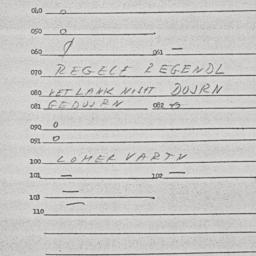 040 o
050 o
060 ∅ 061 —
070 REGELE REGENDL
080 HET LANK NIGHT DUJRN
081 GEDUJRN 082
090 o
091 o
100 LOMER VARTN
101 — 102 —
103 —
110